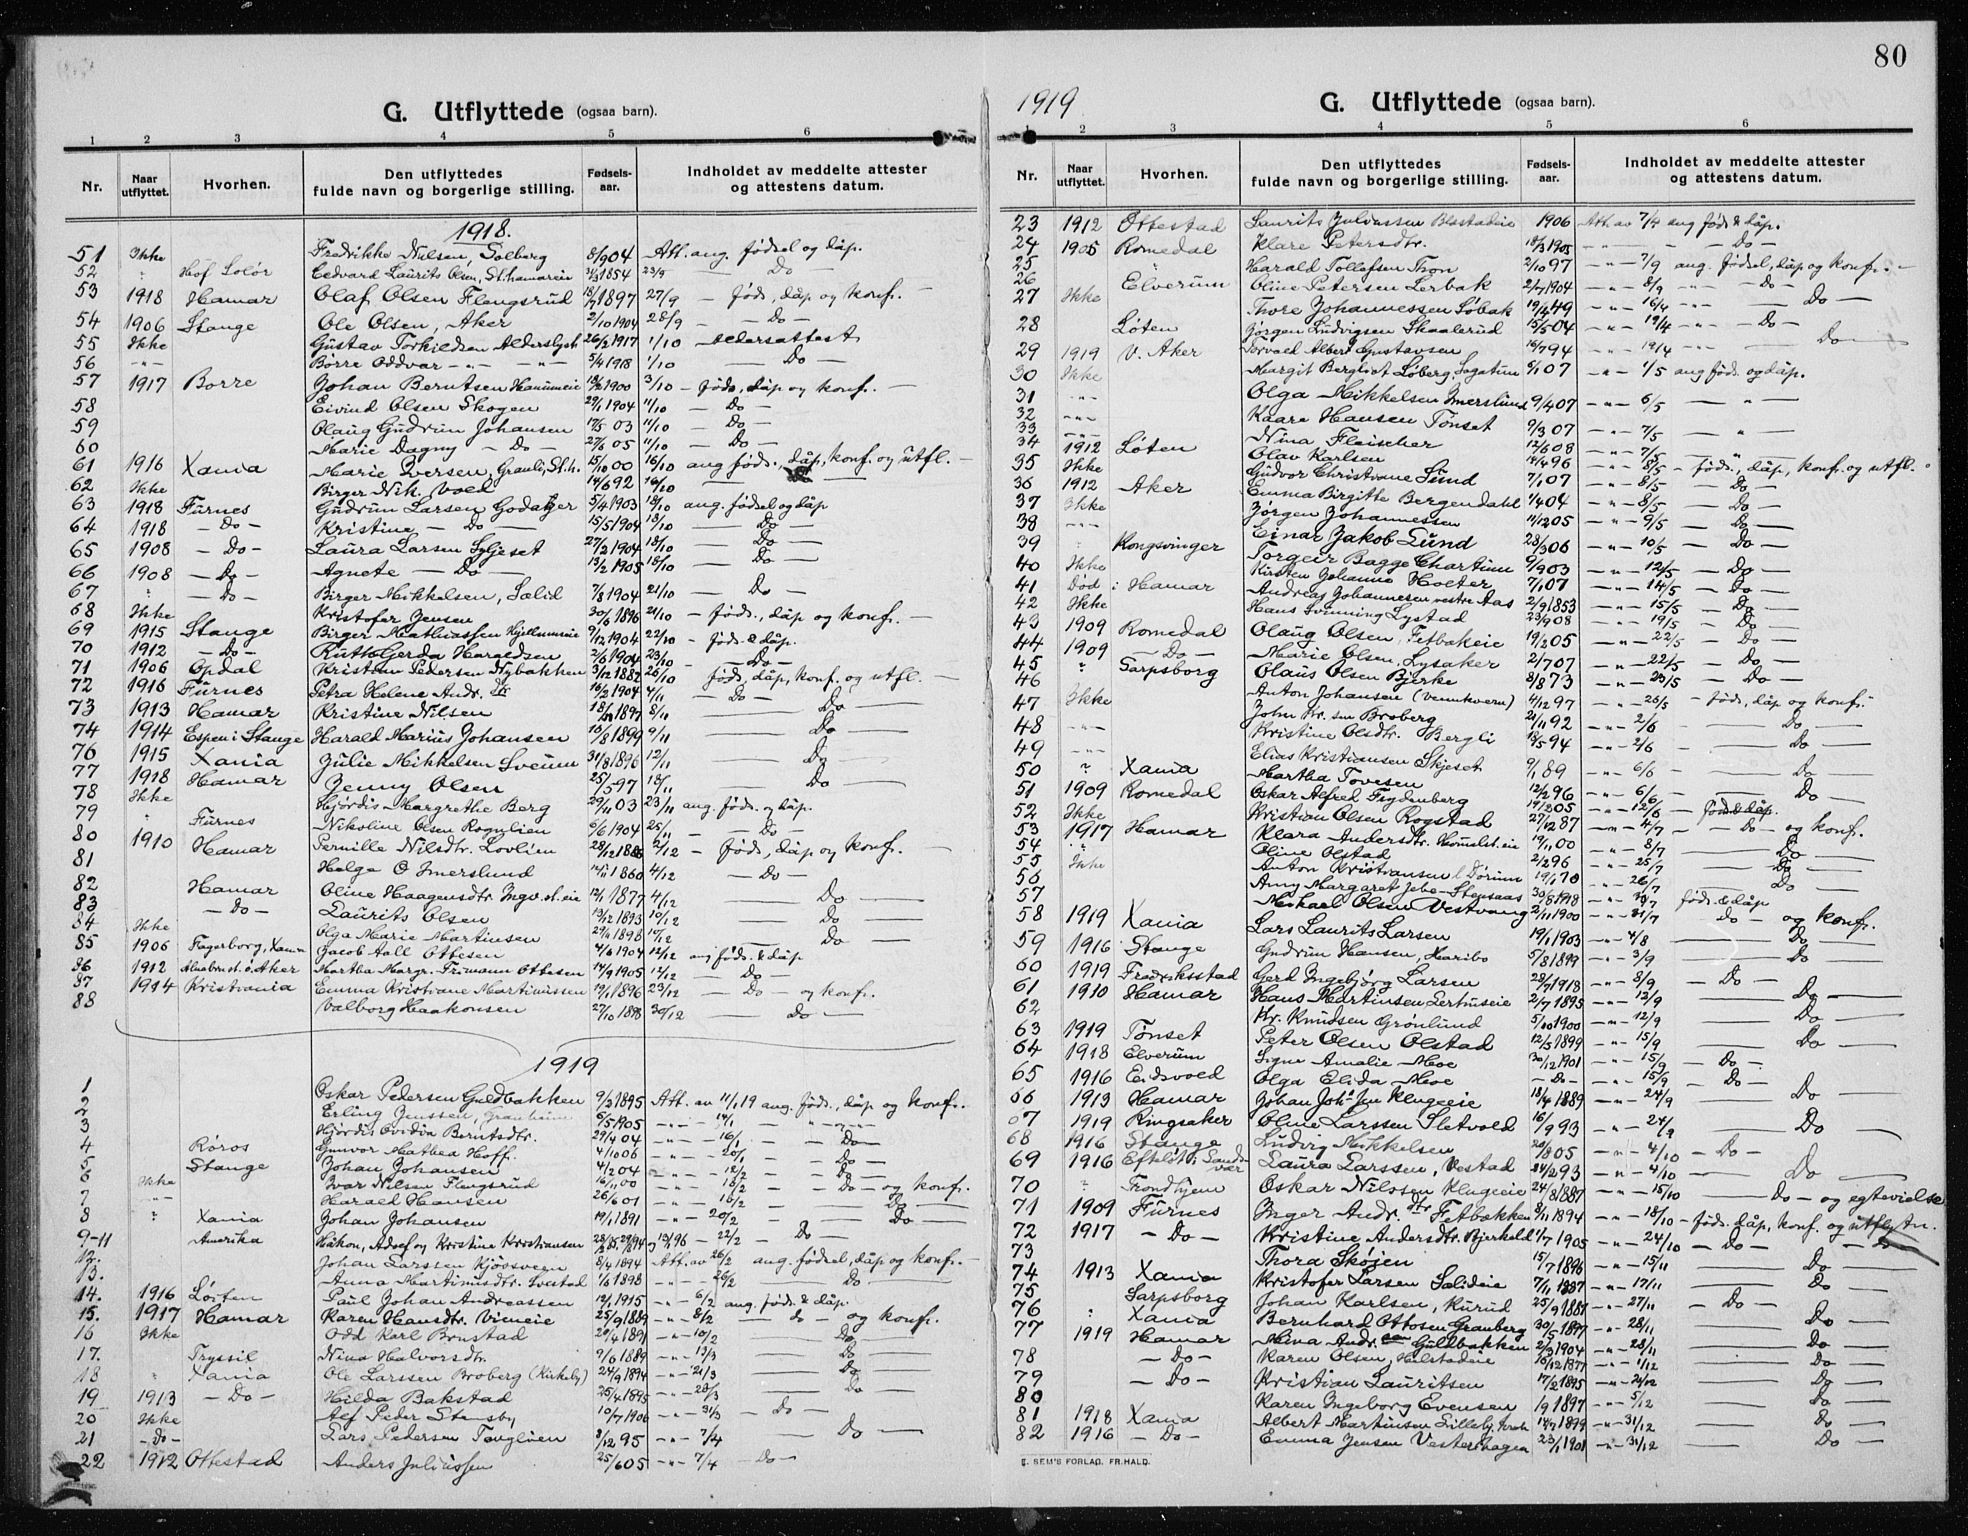 80
G. Utflyttede (ogsaa barn).
1 2 3 4 5 6
Nr. Naar utflyttet. Hvorhen. Den utflyttedes fulde navn og borgerlige stilling. Fødsels-aar. Indholdet av meddelte attester og attestens datum.
1918.
51 Ikke Fredrikke Nielsen, Solberg 8/9 04 Att. ang. fødsel og dåp.
52 " Hof Solør Edvard Laurits Olsen, St. hamareie 1854 23/9 — Do —
53 1918 Hamar Olaf Olsen Flengsrud 1897 27/9 — føds., dåp og konf. —
54 1906 Stange Ole Olsen, Aker 2/10 1904 28/9 — Do —
55 Ikke Gustav Torkildsen Alderslyst 26/2 1917 1/10 Aldersattest
56 -"- Børre Oddvar -"- -"- 5/4 1918 1/10 Do —
57 1917 Borre Johan Berntsen 1900 3/10 — føds., dåp og konf. —
58 Eivind Olsen Skogen 29/1 1904 11/10 — Do —
59 Olaug Gudrun Johansen 03 11/10 — Do —
60 Marie Dagny — Do — 05 11/10 — Do —
61 1916 Xania Marie Iversen, 15/10 00 16/10 ang føds., dåp, konf. og utfl. —
62 Ikke Birger Nik. Vold 14/6 92 16/10
63 1918 Furnes Gudrun Larsen 5/4 1903 18/10 ang. fødsel og dåp
64 1918 — Do — Kristine — Do — 15/5 1904 18/10 — Do —
65 1908 — Do — Laura Larsen 27/2 1904 18/10 — Do —
66 1908 — Do — Agnete — Do — 13/2 1905 18/10 — Do —
67 " — Do — Birger Mikkelsen, Sælid 7/8 1904 21/10 — Do —
68 Ikke Kristofer Jensen 30/1 1896 21/10 — føds., dåp og konf. —
69 1915 Stange Birger Mathiassen 9/12 1904 22/10 — føds. & dåp.
70 1912 — Do — Ruth Gerda Haraldsen 2/6 1904 23/10 — Do —
71 1906 Opdal Kristian Pedersen Nybakken 3/12 1882 26/10 føds, dåp, konf. og utfl. —
72 1916 Furnes Petra Helene Andr. dtr 16/2 1904 4/11 — Do —
73 1913 Hamar Kristine Nilsen 1897 8/11 Do
74 1914 Espen i Stange Harald Marius Johansen 10/8 1899 9/11 Do
76 1915 Xania Julie Mikkelsen Sveum 31/8 1896 12/11 Do
77 1918 Hamar Jenny Olsen 25/5 97 18/11 Do
78 Ikke Hjørdis Margrethe Berg 29/11 03 23/11 ang. føds. og dåp.
79 " Furnes Nikoline Olsen 6/6 1904 25/11 — Do —
80 1910 Hamar Pernille Nilsdtr. Lovlien 28/12 1886 2/12 — føds., dåp og konf. —
81 Helge O Imerslund 1880 4/12 — Do —
82 Hamar Oline Haagensdtr 12/1 1877 4/12 Do
83 — Do — Laurits Olsen 13/12 1893 10/12 Do
84 Ikke Olga Marie Martinsen 1898 10/12 Do
85 1906 Fagerborg, Xania Jacob Aall Ottesen 4/6 1904 12/12 ang føds. & dåp
86 1912 Ø. Aker Martha Margr. Frimann Ottesen 14/9 1905 12/12 — Do —
87 1914 Kristiania Emma Kristiane Martinussen 1896 23/12 — Do — og konf.
88 Valborg Haakonsen 27/10 1898 30/12 — Do —
1919
1 Oskar Pedersen Guldbakken 9/2 1895 Att. av 11/1 19 ang. føds., dåp og konf.
2 Erling Jenssen, 6/5 1905 -"- 14/1
3 Hjørdis Ovidia Berntsdtr. 29/4 04 -"- 16/1 — Do —
4 Røros Gunvor Mathea Hoff. 4/10 06 -"- 20/1 — Do —
5 Stange Johan Johansen 4/2 04 12/2 — Do —
6 Ikke Ivar Nilsen Flengsrud 16/11 00 -"- 18/2 — Do — og konf.
7 -"- Harald Hansen 26/6 01 -"- 18/2 Do
8 " Xania Johan Johansen 19/1 1891 -"- 20/2 Do
9-11 Amerika Håkon, Adolf og Kristine Kristiansen -"- 22/2 — Do —
12. Johan Larsen Kjøsveen 8/4 1894 Att. av 26/2 ang. fødsel, dåp og konf.
13. Anna Martinusdtr. Svestad 1/6 1898 -"- 26/2 Do
14. 1916 Løiten Paul Johan Andreassen 12/1 1915 -"- 6/2 ang. føds. & dåp.
15. 1917 Hamar Karen Hansdtr. Vieneie 25/9 1889 -"- 8/2 — do — og konf.
16 Ikke Odd Karl Brustad 20/4 1891 -"- 10/2 Do
17. Tryssil Nina Halvorsdtr. 9/6 1889 -"- 13/3 Do
18 " Xania Ole Larssen Broberg (Kirkeby) 24/9 1894 -"- 21/3 Do
19 1913 — Do — Hilda Bakstad 25/4 1895 -"- 28/3 Do
20 Ikke Alf Peder Stensby 10/7 1906 -"- 31/3 — Do —
21 — Do — Lars Pedersen 3/12 95 -"- 7/4 Do
22 1912 Ottestad Anders Juliussen 25/6 05 -"- 7/4 — Do —
1919
G. Utflyttede (ogsaa barn).
1 2 3 4 5 6
Nr. Naar utflyttet. Hvorhen. Den utflyttedes fulde navn og borgerlige stilling. Fødsels-aar. Indholdet av meddelte attester og attestens datum.
23 1912 Ottestad Laurits Juliussen 1906 Att. av 7/4 ang føds & dåp.
24 1905 Romedal Klare Petersdtr. 18/3 1905 — Do —
25 Harald Tollefsen Thon 2/10 97 -"- 7/9 ang. fødsel, dåp og konf. —
26 Elverum Oline Petersen Lerbak 2/7 1904 -"- 8/9 — Do —
27 Ikke Thore Johannessen Løbak 19/4 49 -"- 16/4 Do
28 Løten Jørgen Ludvigsen Skaalerud 15/5 04 -"- 19/4 — Do —
29 1919 V. Aker Torvald Albert Gustavsen 16/7 94 -"- 19/4 Do
30 Ikke Margit Bergliot Løberg, 6/1 07 -"- 1/5 ang føds. og dåp.
31 -"- Olga Mikkelsen Imerslund 9/4 07 -"- 6/5 — " —
32 -"- Kaare Hansen Tønset 9/3 07 -"- 7/5 "
33 -"- Nina Fleischer 12/6 08 -"- 7/5 "
34 1912 Løten Olav Karlsen 14/4 96 -"- 8/5 — føds., dåp, konf. og utfl.
35 Ikke Gudvor Christiane Lund 7/1 07 -"- 8/5 — Do —
36 1912 Aker Emma Birgitte Bergendahl 04 -"- 8/5 — Do —
37 Ikke Jørgen Johannessen 11/12 05 -"- 9/5 — Do —
38 -"- Einar Jakob Lund 28/3 06 -"- 10/5 — Do —
39 " Kongsvinger Torgeir Bagge Chartum 9/9 03 -"- 12/5 — Do —
40 Ikke Kirsten Johanne Holter 7/1 07 -"- 14/5 — Do —
41 Død i Hamar Andreas Johannesen vestre Aas 2/9 1853 -"- 15/5 — Do —
42 Ikke Hans Svenning Lystad 23/9 08 -"- 19/5 — Do —
43 1909 Romedal Olaug Olsen, Fetbakeie 19/2 05 -"- 22/5 — Do —
44 1909 — Do — Marie Olsen, Lysaker 2/7 07 -"- 22/5 — Do —
45 " Sarpsborg Olaus Olsen Bjerke 8/8 73 -"- 23/5 — Do —
46 Anton Johansen (Vennkvern) 4/12 97 -"- 26/5 — føds, dåp og konf.
47 Ikke John Kr. sen Broberg 21/11 92 -"- 2/6 Do
48 -"- Kristine Olsdtr. Bergli 18/5 94 -"- 2/6 — Do —
49 -"- Elias Kristiansen Skjeset 9/1 89 -"- 6/6 — Do
50 " Xania Martha Tovesen 12/2 96 -"- 6/6 — Do
51 1909 Romedal Oskar Alfred Frydenberg 19/2 05 -"- 12/6 — føds & dåp.
52 Ikke Kristian Olsen Rogstad 27/12 87 -"- 4/7 — Do — og konf.
53 1917 Hamar Klara Andersdtr. 19/11 00 -"- 8/7 Do
54 " Oline Olstad 2/2 96 -"- 25/7 Do
55 Ikke Anton Kristiansen Dørum 19/1 70 -"- 26/7 Do
56 Amy Margaret Jebe-Stensaas 30/8 1918 føds. & dåp
57 Mikael Olsen Vestvang 2/11 1900 -"- 31/7 Do og konf.
58 1919 Xania Lars Laurits Larsen 19/1 1903 -"- 4/8 Do
59 1916 Stange Gudrun Hansen, Haribo 5/8 1899 -"- 3/9 Do
60 1919 Fredriksstad Gerd Ingebjørg Larsen 22/7 1918 -"- 8/9 — Do —
61 1910 Hamar Hans Martinsen 2/7 1895 -"- 12/9 Do
62 Kr. Knudsen Grønlund 5/10 1900 -"- 12/9 Do
63 1919 Tønset Peter Olsen Olstad 12/5 1899 -"- 15/9 Do
64 1918 Elverum Signe Amalie Moe 30/12 1901 -"- 15/9 — Do —
65 1916 Eidsvold Olga Elida Moe — Do — -"- 15/9 — Do —
66 1913 Hamar Johan Joh's sen Klugeeie 18/4 1889 -"- 24/9 Do
67 1919 Ringsaker Oline Larssen Sletvold 16/9 93 -"- 24/9 Do
68 1916 Stange Ludvig Mikkelsen 28/8 05 -"- 4/10 — Do —
69 1916 Laura Larssen, Vestad 24/2 93 -"- 4/10 Do
70 " Trondhjem Oskar Nilssen Klugeeie 24/8 1887 -"- 15/10 — Do — og egtevielse
71 1909 Furnes Inger Andr. dtr Fetbakken 8/11 1894 -"- 18/10 — føds. dåp, konf. og utflytn.
72 1917 — Do — Kristine Andersdtr. Bjerkeld 7/7 1905 -"- 24/10 — Do —
73 Thora Skøjen 15/7 1896 -"- 15/11 Do
74 1913 Xania Kristofer Larsen Sælideie 7/11 1887 -"- 17/11 Do
75 Sarpsborg Johan Karlsen, Kurud 25/9 1887 -"- 27/11 — Do —
76 " Xania Bernhard Ottosen Granberg 30/5 1897 -"- 28/11 Do
77 1919 Hamar Mina Andr. sen Guldbakken 2/3 1904 -"- 28/11 Do
78 — Do — Karen Olsen, Hilstadeie 16/12 1877 -"- 1/12 Do
79 — Do — Kristian Lauritsen 17/2 1895 -"- 2/12 Do
80 Karen Ingeborg Evensen 1/9 1897 -"- 5/12 Do
81 1918 Xania Albert Martinsen 1899 -"- 31/12 Do
82 1916 — Do — Emma Jensen Vestershagen 23/1 1901 -"- 31/12 Do
E. SEM'S FORLAG, FR.HALD.